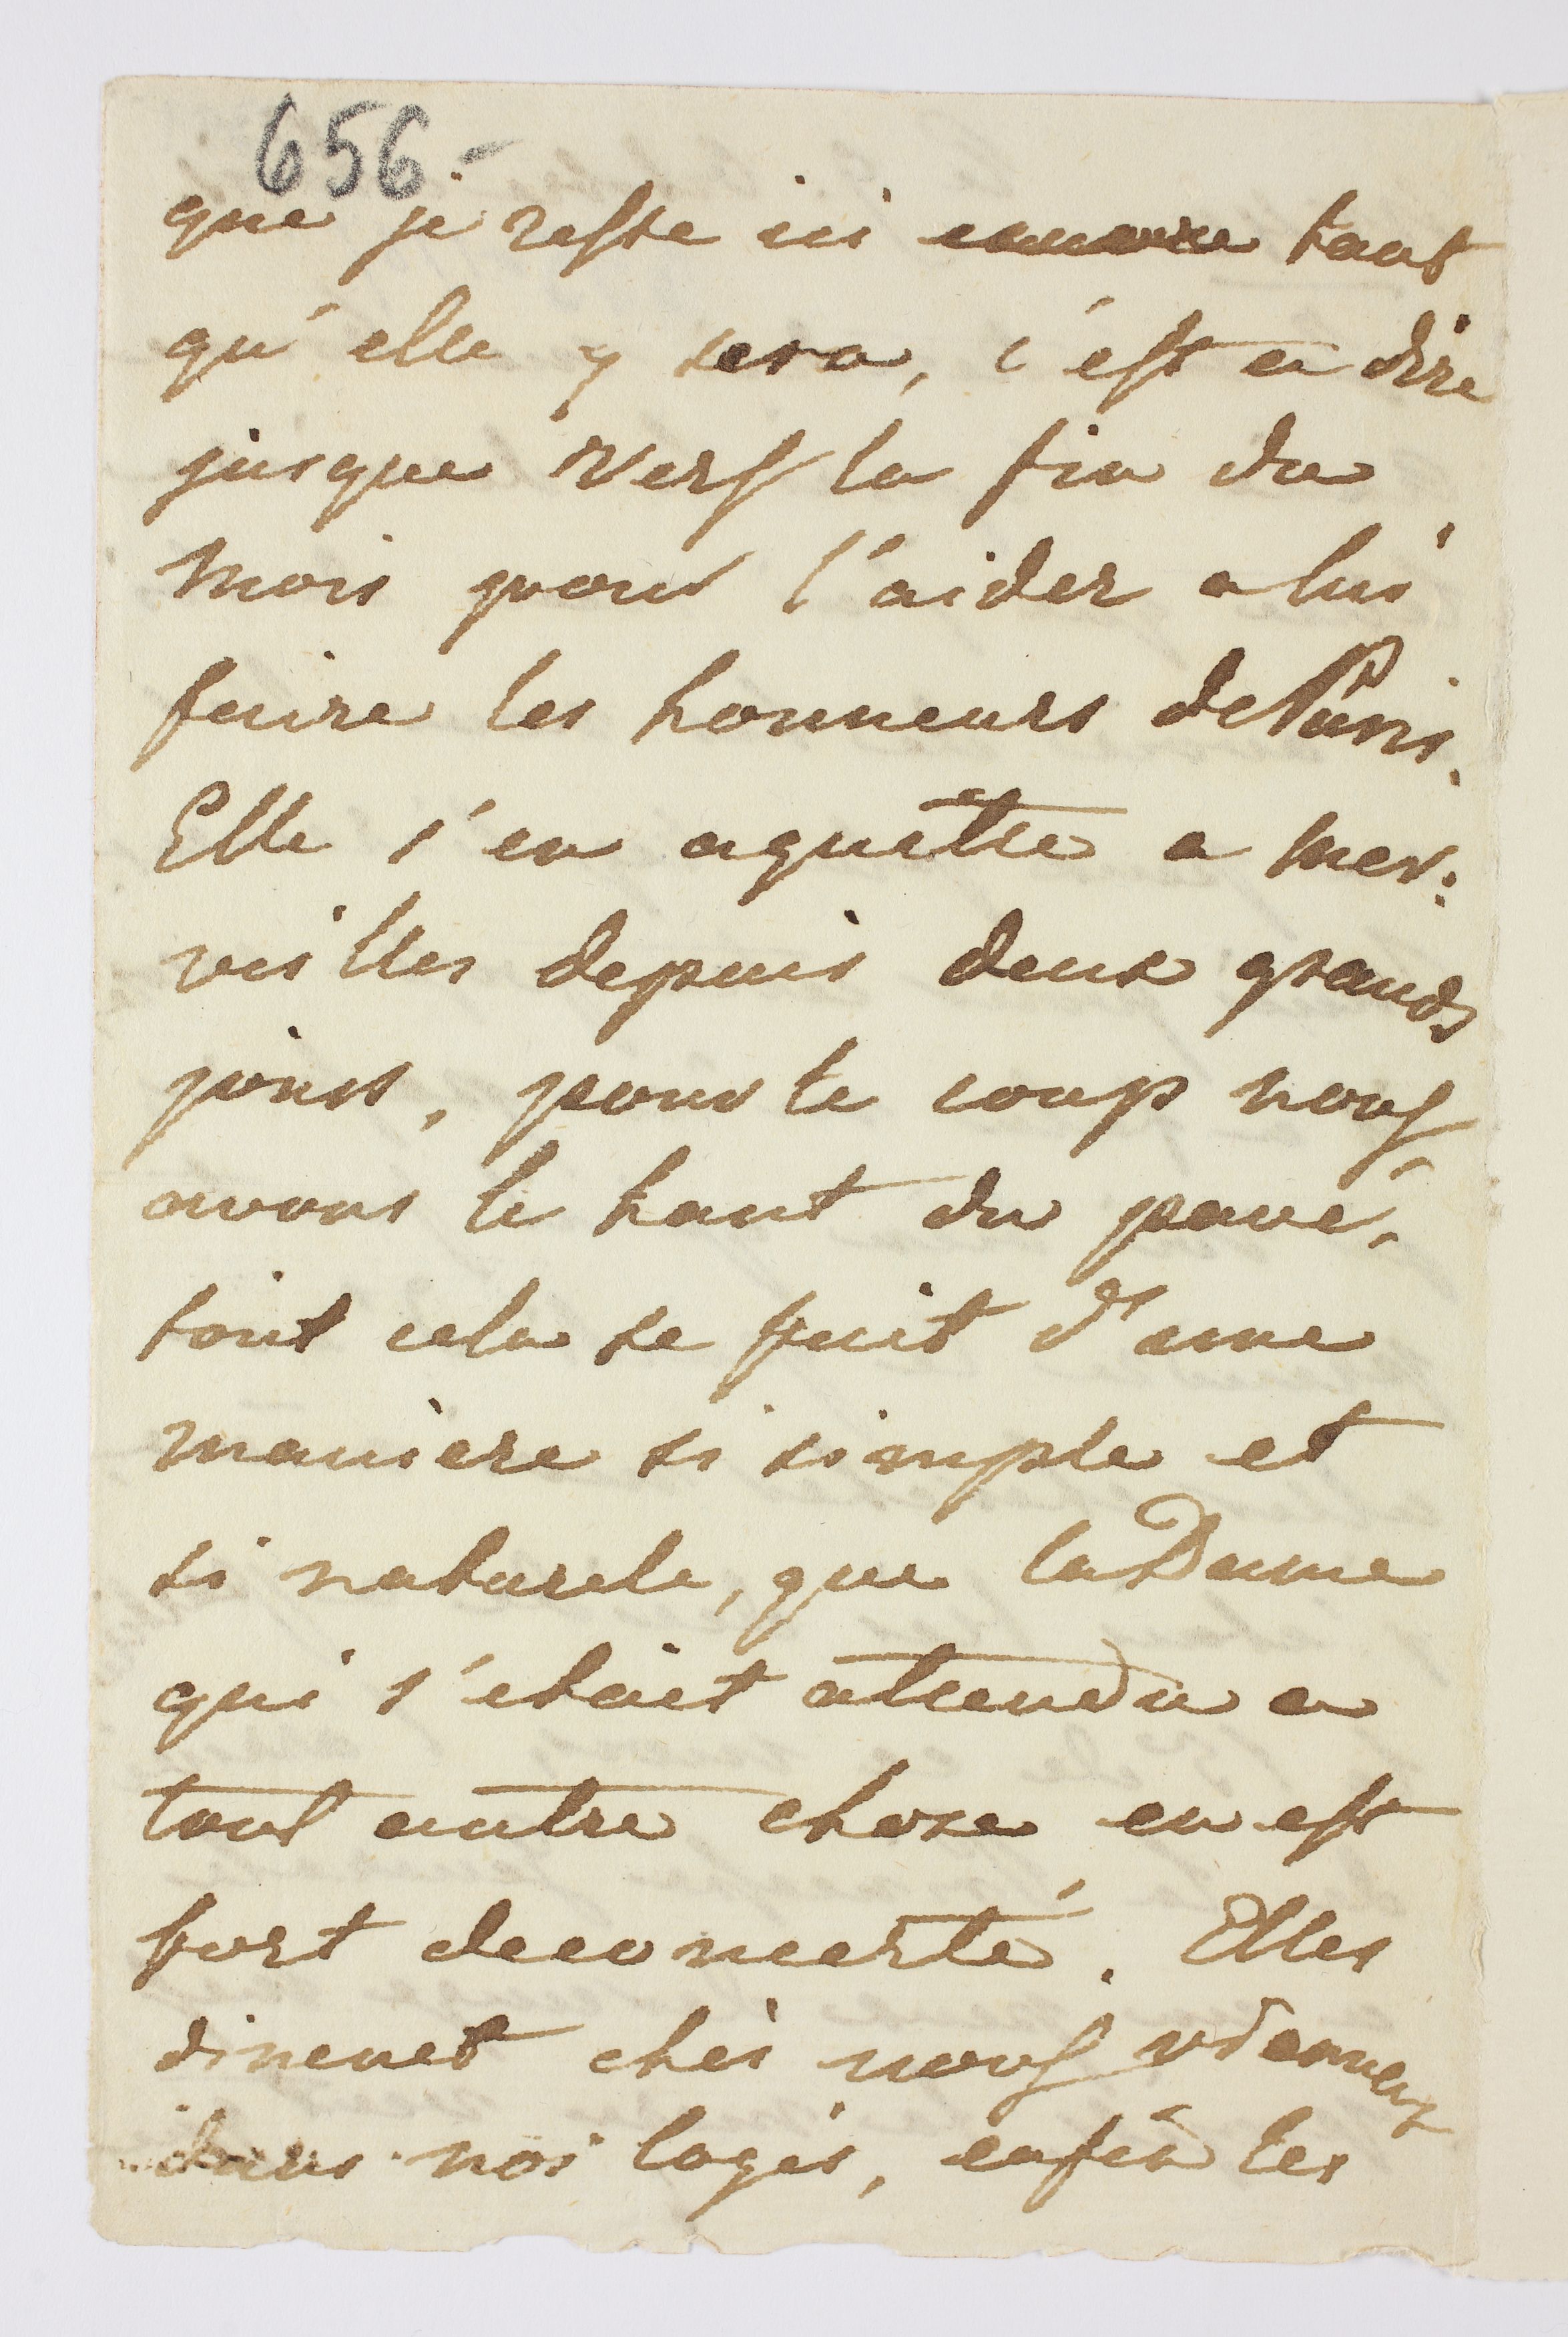 656-
que je reste ici encore tant
qu'elle y sera, c'est a dire
jusque vers la fin du
mois pour l'aider a lui
faire les honneurs de Paris.
Elle s'en aquitte a mer:
veilles depuis deux grands
jours, pour le coup nous
avons le haut du pavé,
tout cela se fait d'une
maniere si simple et
si naturele, que la Dame
qui s'etait attendu a
tout autre chose en est
fort deconcerté. Elles
dinent chès nous
dans nos loges, enfin les